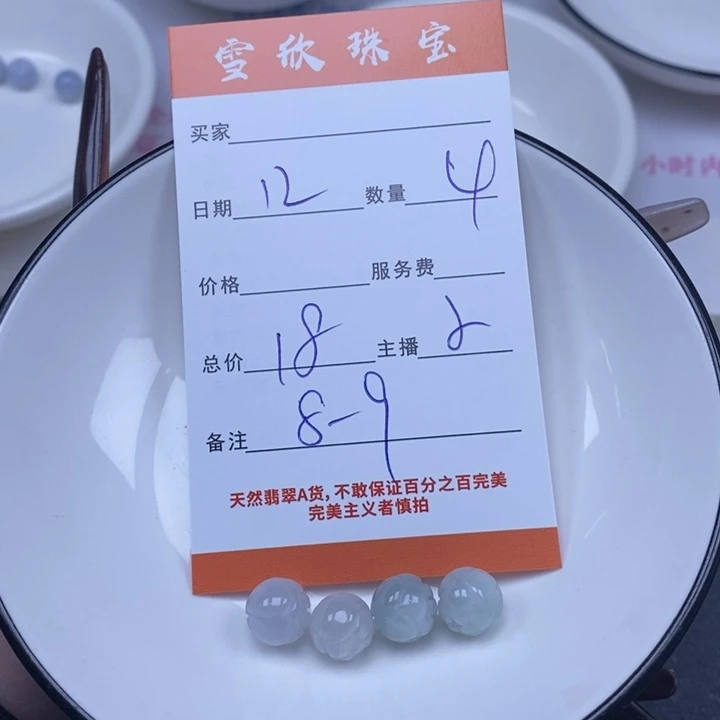 雪欣珠宝
买家
日期 12 数量 4
价格 服务费
总价 18 主播 2
备注 8-9
天然翡翠A货,不敢保证百分之百完美
完美主义者慎拍
小时内